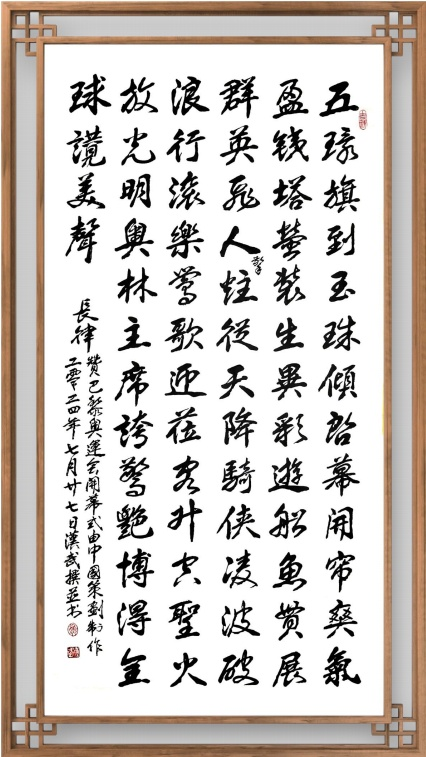 五環旗到玉珠傾啓幕開帘爽氣
盈铁塔螢裝生異彩遊船魚貫展
群英飛人擎炷從天降騎俠凌波破
浪行滾樂鶯歌迎蒞客升空聖火
放光明奧林主席誇驚艷博得全
球讚美聲
長律
贊巴黎奧運会開幕式由中國策劃制作
二零二四年七月廿七日漢武撰並书